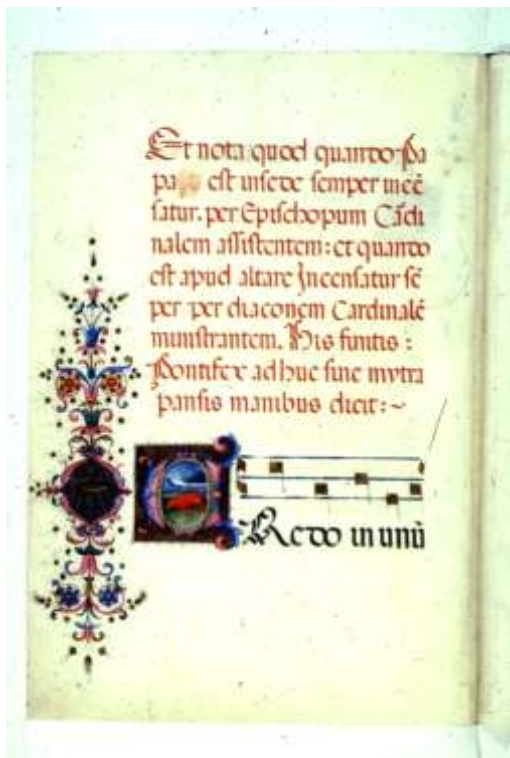 Et nota quod quando Pa
pa est in sede semper incē
satur. per Epischopum Cardi
nalem assistentem: et quando
est apud altare Incensatur sē
per per diaconem Cardinalē
ministrantem. His finitis :
Pontifex adhuc sine mytra
pansis manibus dicit: ~
CRedo in unū